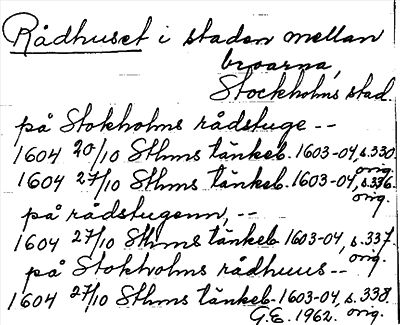 Rådhuset i staden mellan
broarna,
Stockholms stad.
på Stokholms rådstuge --
1604 20/10 Sthms tänkeb. 1603-04, s.330.
orig.
1604 27/10 Sthms tänkeb. 1603-04, s.336.
orig.
på rådstugenn, --
1604 27/10 Sthms tänkeb 1603-04, s.337.
orig.
på Stokholms rådhuus --
1604 27/10 Sthms tänkeb. 1603-04, s.338.
G.E. 1962. orig.